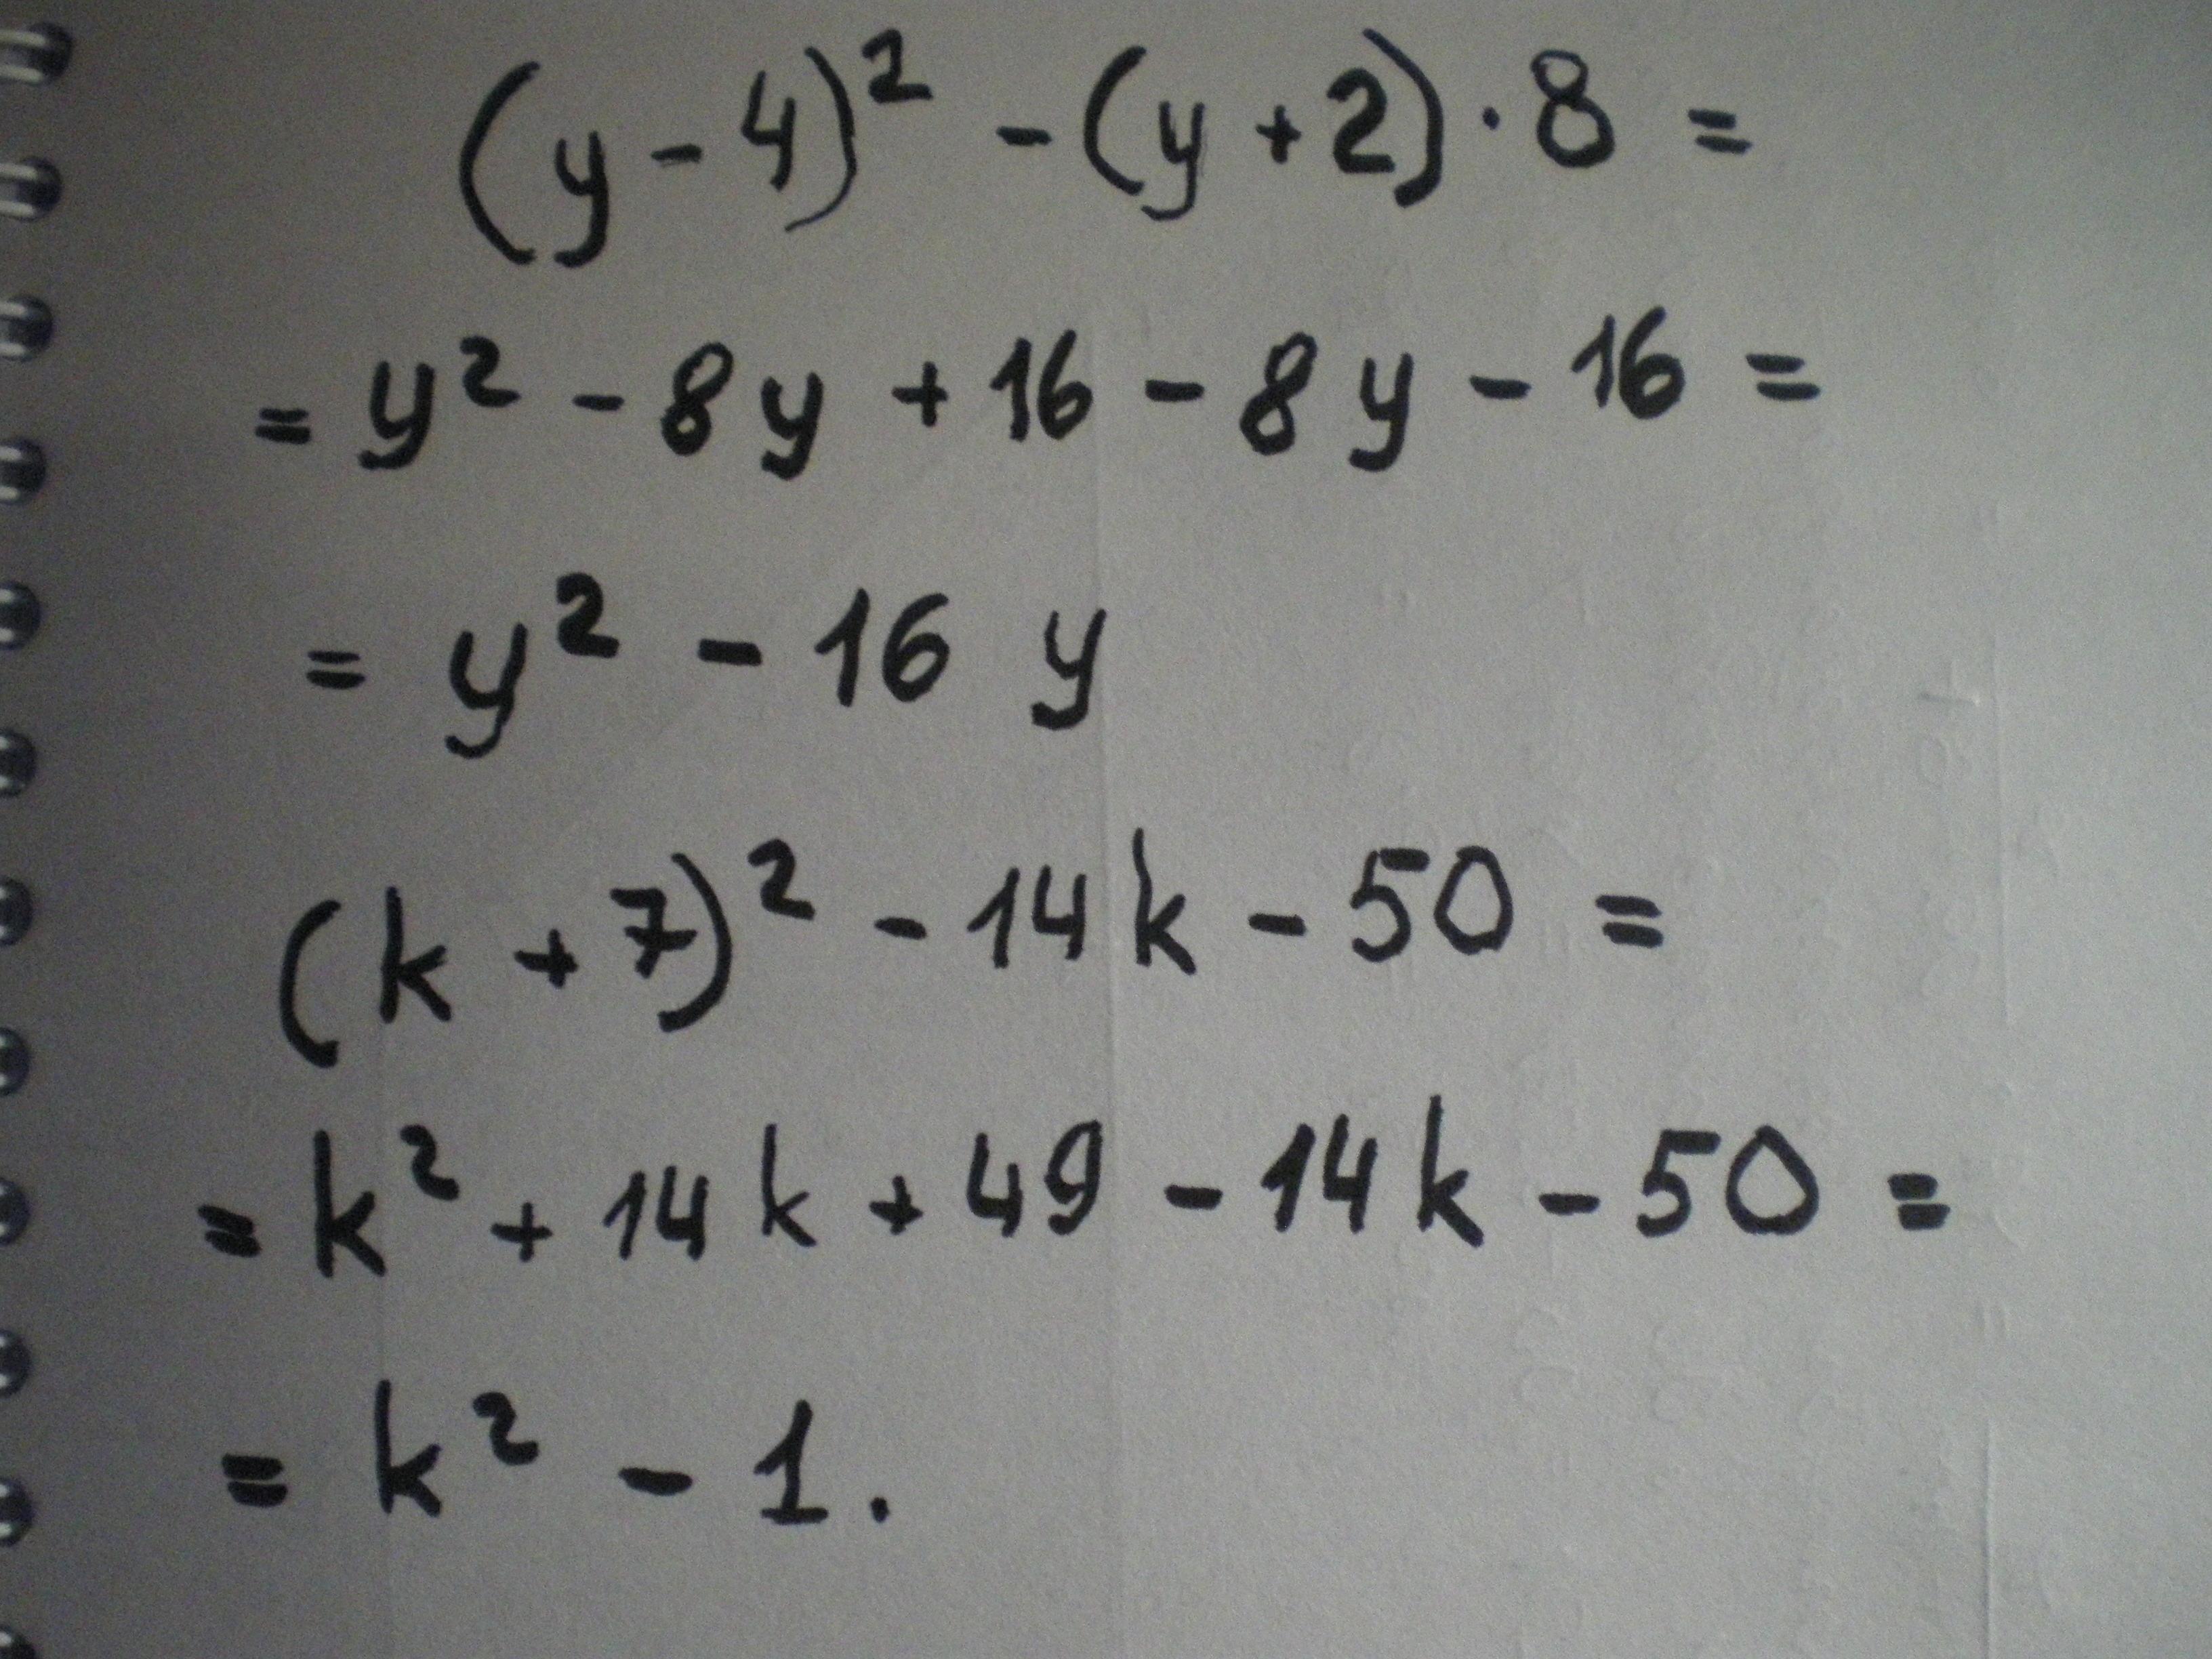 (y - 4)² - (y + 2) · 8 =
= y² - 8y + 16 - 8y - 16 =
= y² - 16 y
(k + 7)² - 14k - 50 =
= k² + 14k + 49 - 14k - 50 =
= k² - 1.